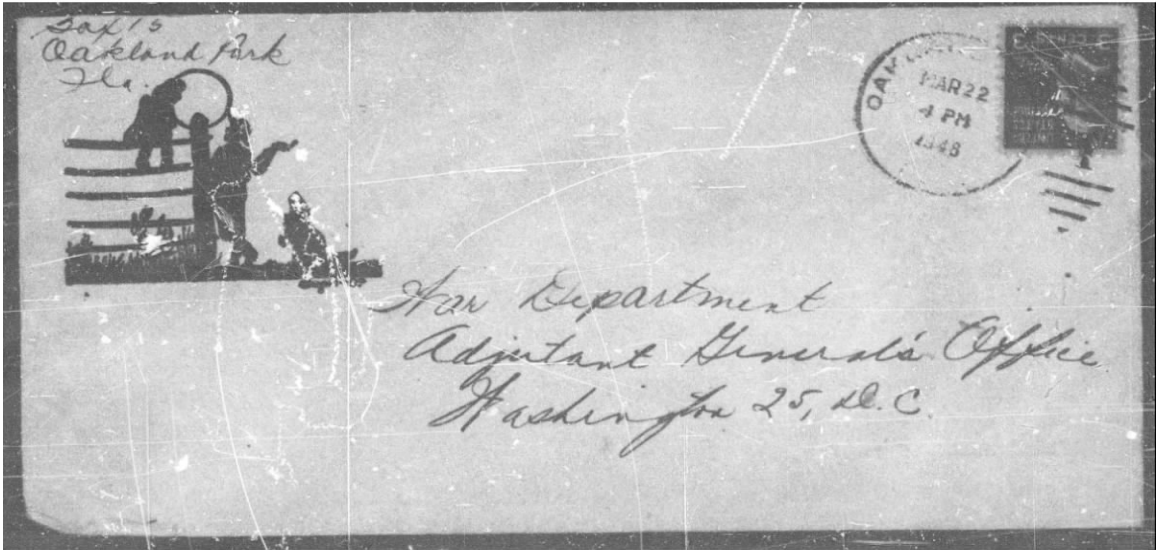 Box 15
Oakland Park
Fla.
MAR 22
4 PM
War Department
Adjutant General's Office
Washington 25, D.C.